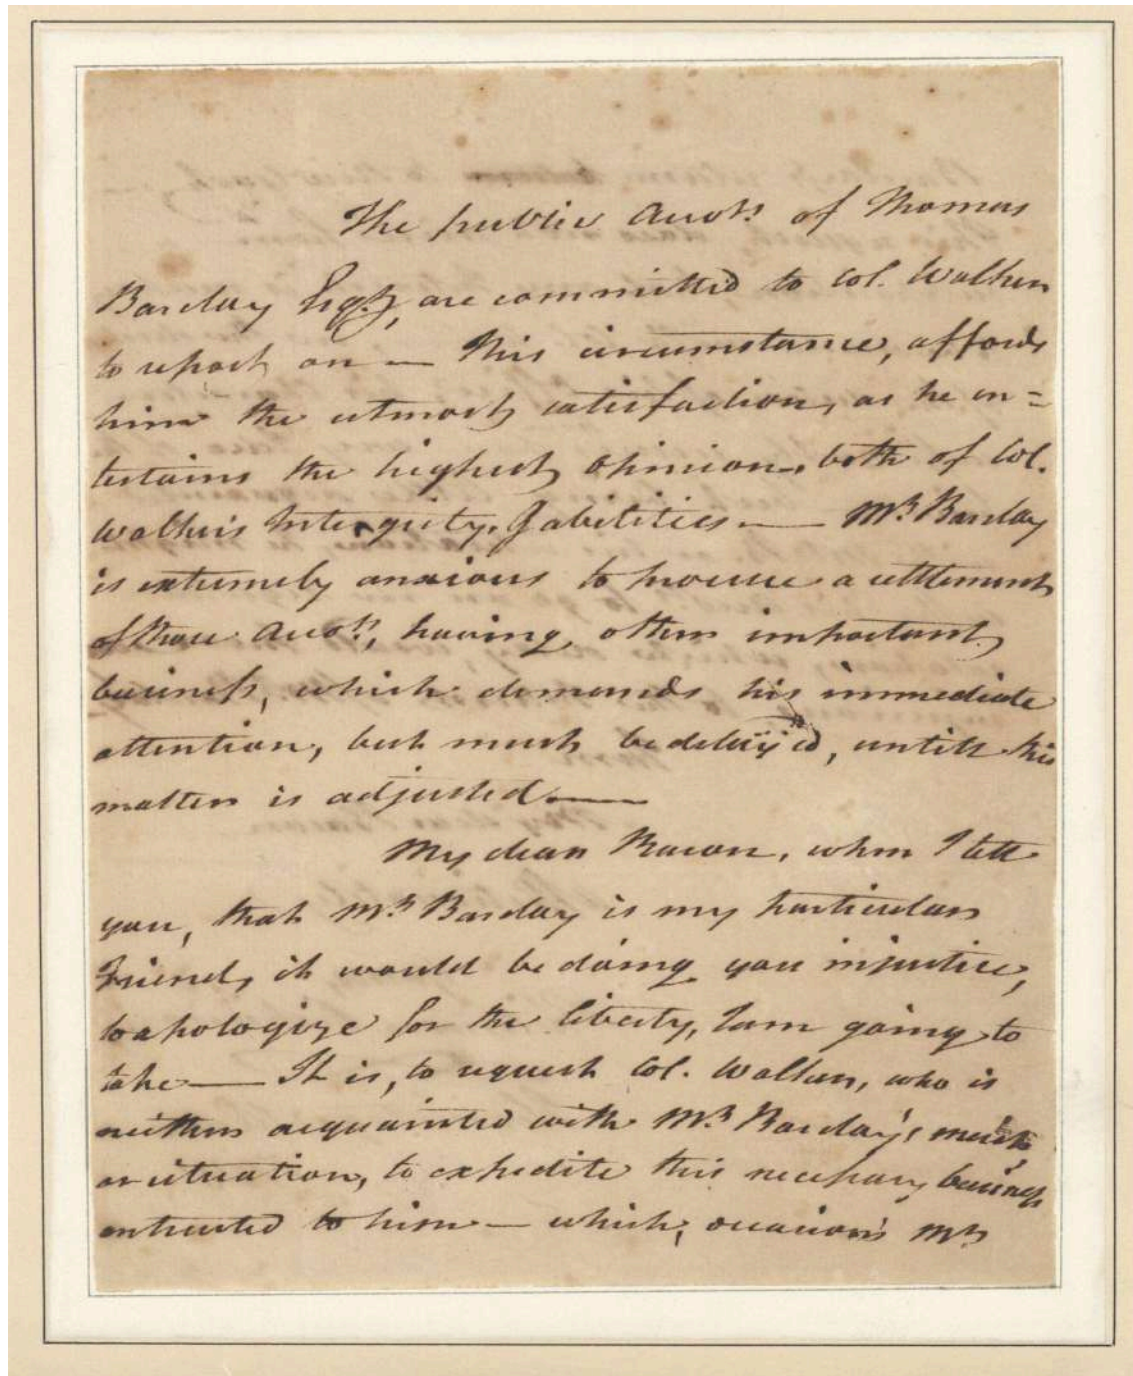 The public Accots. of Thomas
Barclay Esqr., are committed to Col. Walker
to report on — This circumstance, affords
him the utmost satisfaction, as he en=
tertains the highest opinion, both of Col.
Walker's Intergrity, & abilities — Mr. Barclay
is extremely anxious to procure a settlement
of these Accots., having other important
business, which demands his immediate
attention, but must be delay'd, untill this
matter is adjusted —
My dear Baron, when I tell
you, that Mr. Barclay is my particular
Friend, it would be doing you injustice,
to apologize for the liberty, I am going to
take — It is, to request Col. Walker, who is
neither acquainted with Mr. Barclay's merits
or situation, to expedite this necessary business
entrusted to him — which, occasion's Mr.